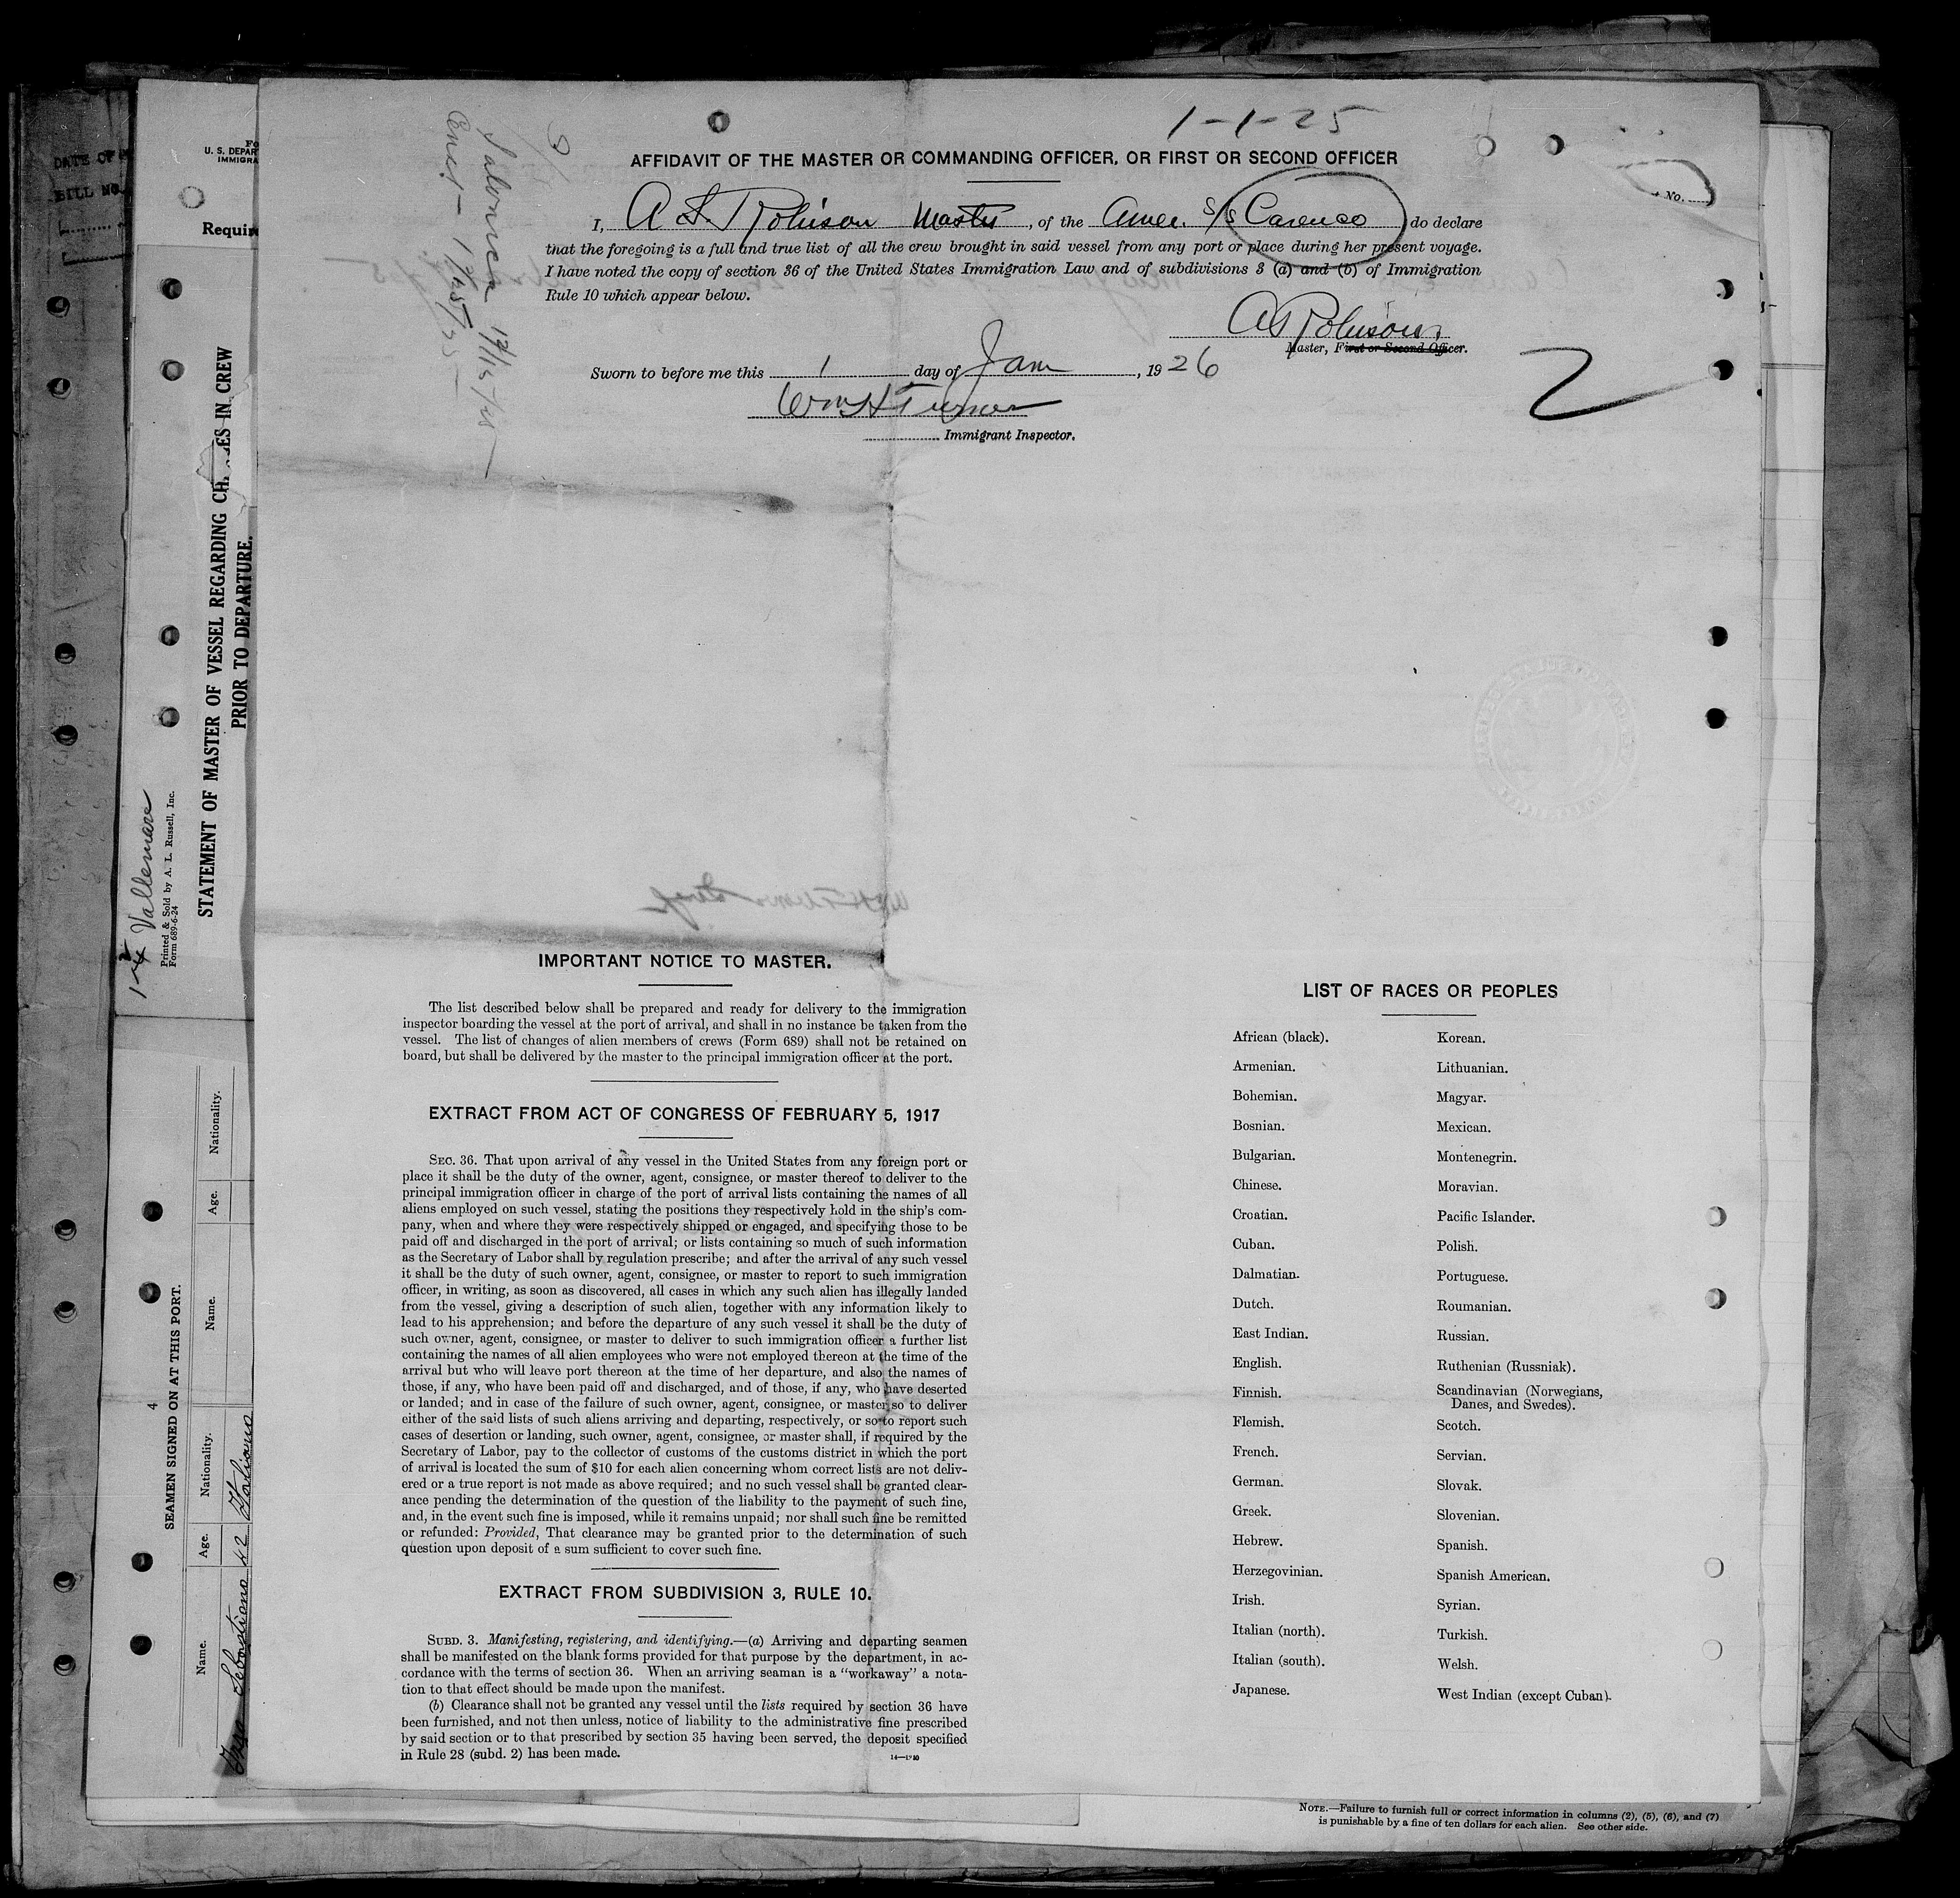 1-1-25
AFFIDAVIT OF THE MASTER OR COMMANDING OFFICER, OR FIRST OR SECOND OFFICER
I, A S. Robison Master, of the Amer. S/S Carenco do declare
that the foregoing is a full and true list of all the crew brought in said vessel from any port or place during her present voyage.
I have noted the copy of section 36 of the United States Immigration Law and of subdivisions 3 (a) and (b) of Immigration
Rule 10 which appear below.
A S Robison
Master, First or Second Officer.
Sworn to before me this 1 day of Jan, 1926
Wm H Turner
Immigrant Inspector.
2
IMPORTANT NOTICE TO MASTER.
The list described below shall be prepared and ready for delivery to the immigration
inspector boarding the vessel at the port of arrival, and shall in no instance be taken from the
vessel. The list of changes of alien members of crews (Form 689) shall not be retained on
board, but shall be delivered by the master to the principal immigration officer at the port.
EXTRACT FROM ACT OF CONGRESS OF FEBRUARY 5, 1917
SEC. 36. That upon arrival of any vessel in the United States from any foreign port or
place it shall be the duty of the owner, agent, consignee, or master thereof to deliver to the
principal immigration officer in charge of the port of arrival lists containing the names of all
aliens employed on such vessel, stating the positions they respectively hold in the ship's com-
pany, when and where they were respectively shipped or engaged, and specifying those to be
paid off and discharged in the port of arrival; or lists containing so much of such information
as the Secretary of Labor shall by regulation prescribe; and after the arrival of any such vessel
it shall be the duty of such owner, agent, consignee, or master to report to such immigration
officer, in writing, as soon as discovered, all cases in which any such alien has illegally landed
from the vessel, giving a description of such alien, together with any information likely to
lead to his apprehension; and before the departure of any such vessel it shall be the duty of
such owner, agent, consignee, or master to deliver to such immigration officer a further list
containing the names of all alien employees who were not employed thereon at the time of the
arrival but who will leave port thereon at the time of her departure, and also the names of
those, if any, who have been paid off and discharged, and of those, if any, who have deserted
or landed; and in case of the failure of such owner, agent, consignee, or master so to deliver
either of the said lists of such aliens arriving and departing, respectively, or so to report such
cases of desertion or landing, such owner, agent, consignee, or master shall, if required by the
Secretary of Labor, pay to the collector of customs of the customs district in which the port
of arrival is located the sum of $10 for each alien concerning whom correct lists are not deliv-
ered or a true report is not made as above required; and no such vessel shall be granted clear-
ance pending the determination of the question of the liability to the payment of such fine,
and, in the event such fine is imposed, while it remains unpaid; nor shall such fine be remitted
or refunded: Provided, That clearance may be granted prior to the determination of such
question upon deposit of a sum sufficient to cover such fine.
EXTRACT FROM SUBDIVISION 3, RULE 10.
SUBD. 3. Manifesting, registering, and identifying.—(a) Arriving and departing seamen
shall be manifested on the blank forms provided for that purpose by the department, in ac-
cordance with the terms of section 36. When an arriving seaman is a “workaway” a nota-
tion to that effect should be made upon the manifest.
(b) Clearance shall not be granted any vessel until the lists required by section 36 have
been furnished, and not then unless, notice of liability to the administrative fine prescribed
by said section or to that prescribed by section 35 having been served, the deposit specified
in Rule 28 (subd. 2) has been made.
LIST OF RACES OR PEOPLES
African (black). Korean.
Armenian. Lithuanian.
Bohemian. Magyar.
Bosnian. Mexican.
Bulgarian. Montenegrin.
Chinese. Moravian.
Croatian. Pacific Islander.
Cuban. Polish.
Dalmatian. Portuguese.
Dutch. Roumanian.
East Indian. Russian.
English. Ruthenian (Russniak).
Finnish. Scandinavian (Norwegians,
Danes, and Swedes).
Flemish. Scotch.
French. Servian.
German. Slovak.
Greek. Slovenian.
Hebrew. Spanish.
Herzegovinian. Spanish American.
Irish. Syrian.
Italian (north). Turkish.
Italian (south). Welsh.
Japanese. West Indian (except Cuban).
NOTE.—Failure to furnish full or correct information in columns (2), (5), (6), and (7)
is punishable by a fine of ten dollars for each alien. See other side.
DATE OF
BILL NO.
U. S. DEPAR
IMMIGRA
Requir
No.
STATEMENT OF MASTER OF VESSEL REGARDING CH ES IN CREW
PRIOR TO DEPARTURE.
Vallemare
Printed & Sold by A. L. Russell, Inc.
Form 689-6-24
4
SEAMEN SIGNED ON AT THIS PORT.
Name. Age. Nationality. Name. Age. Nationality.
Sebastiano 42 Italiano